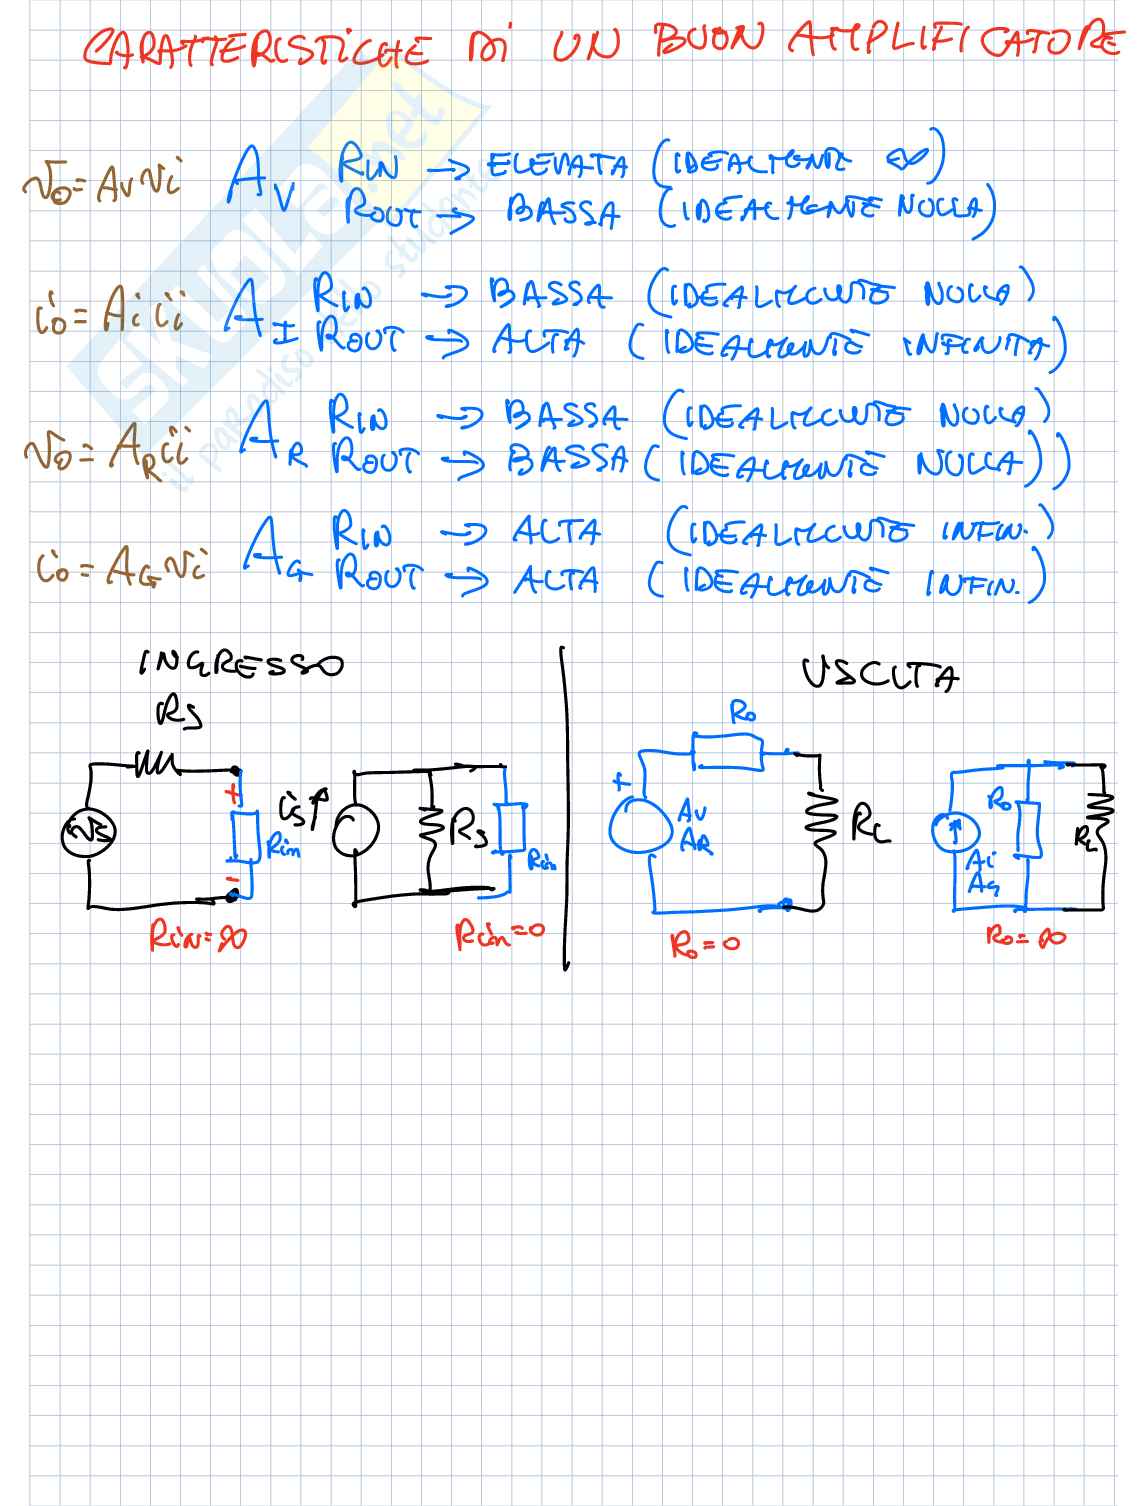 CARATTERISTICHE DI UN BUON AMPLIFICATORE
vo = Av vi Av RIN → ELEVATA (IDEALMENTE ∞)
ROUT → BASSA (IDEALMENTE NULLA)
io = Ai ii AI RIN → BASSA (IDEALMENTE NULLA)
ROUT → ALTA (IDEALMENTE INFINITA)
vo = AR ii AR RIN → BASSA (IDEALMENTE NULLA)
ROUT → BASSA (IDEALMENTE NULLA))
io = AG vi AG RIN → ALTA (IDEALMENTE INFIN.)
ROUT → ALTA (IDEALMENTE INFIN.)
INGRESSO
USCITA
RS
vs
+
Rin
-
Rin = ∞
is↑
Rs
Rin
Rin = 0
Ro
+
Av
AR
RL
Ro = 0
Ro
Ai
AG
RL
Ro = ∞
SKUOLA.net
il paradiso dello studente